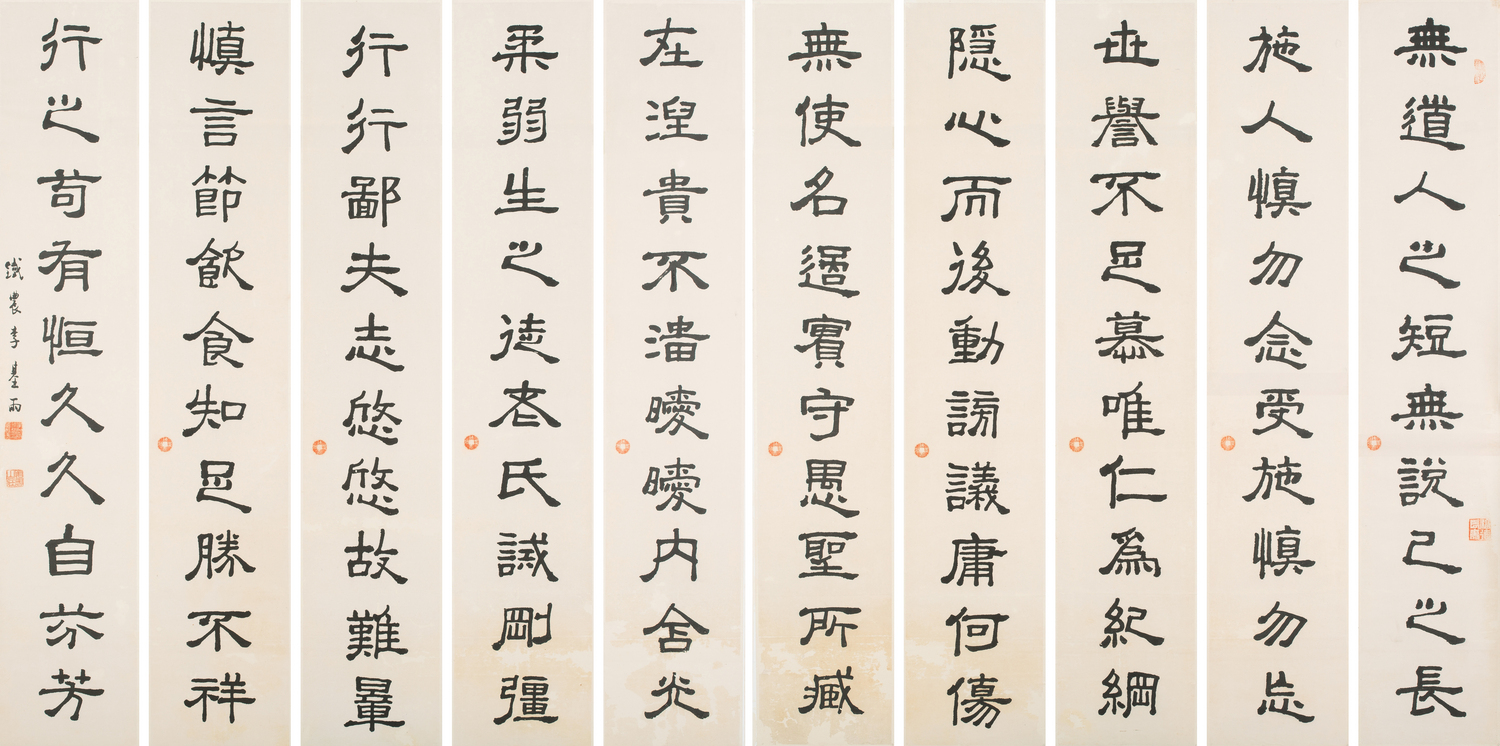 無道人之短無說己之長
施人慎勿念受施慎勿忘
世譽不足慕唯仁爲紀綱
隱心而後動謗議庸何傷
無使名過實守愚聖所臧
在涅貴不淄曖曖內含光
柔弱生之徒老氏誡剛彊
行行鄙夫志悠悠故難量
慎言節飲食知足勝不祥
行之苟有恒久久自芬芳
鐵農李基雨